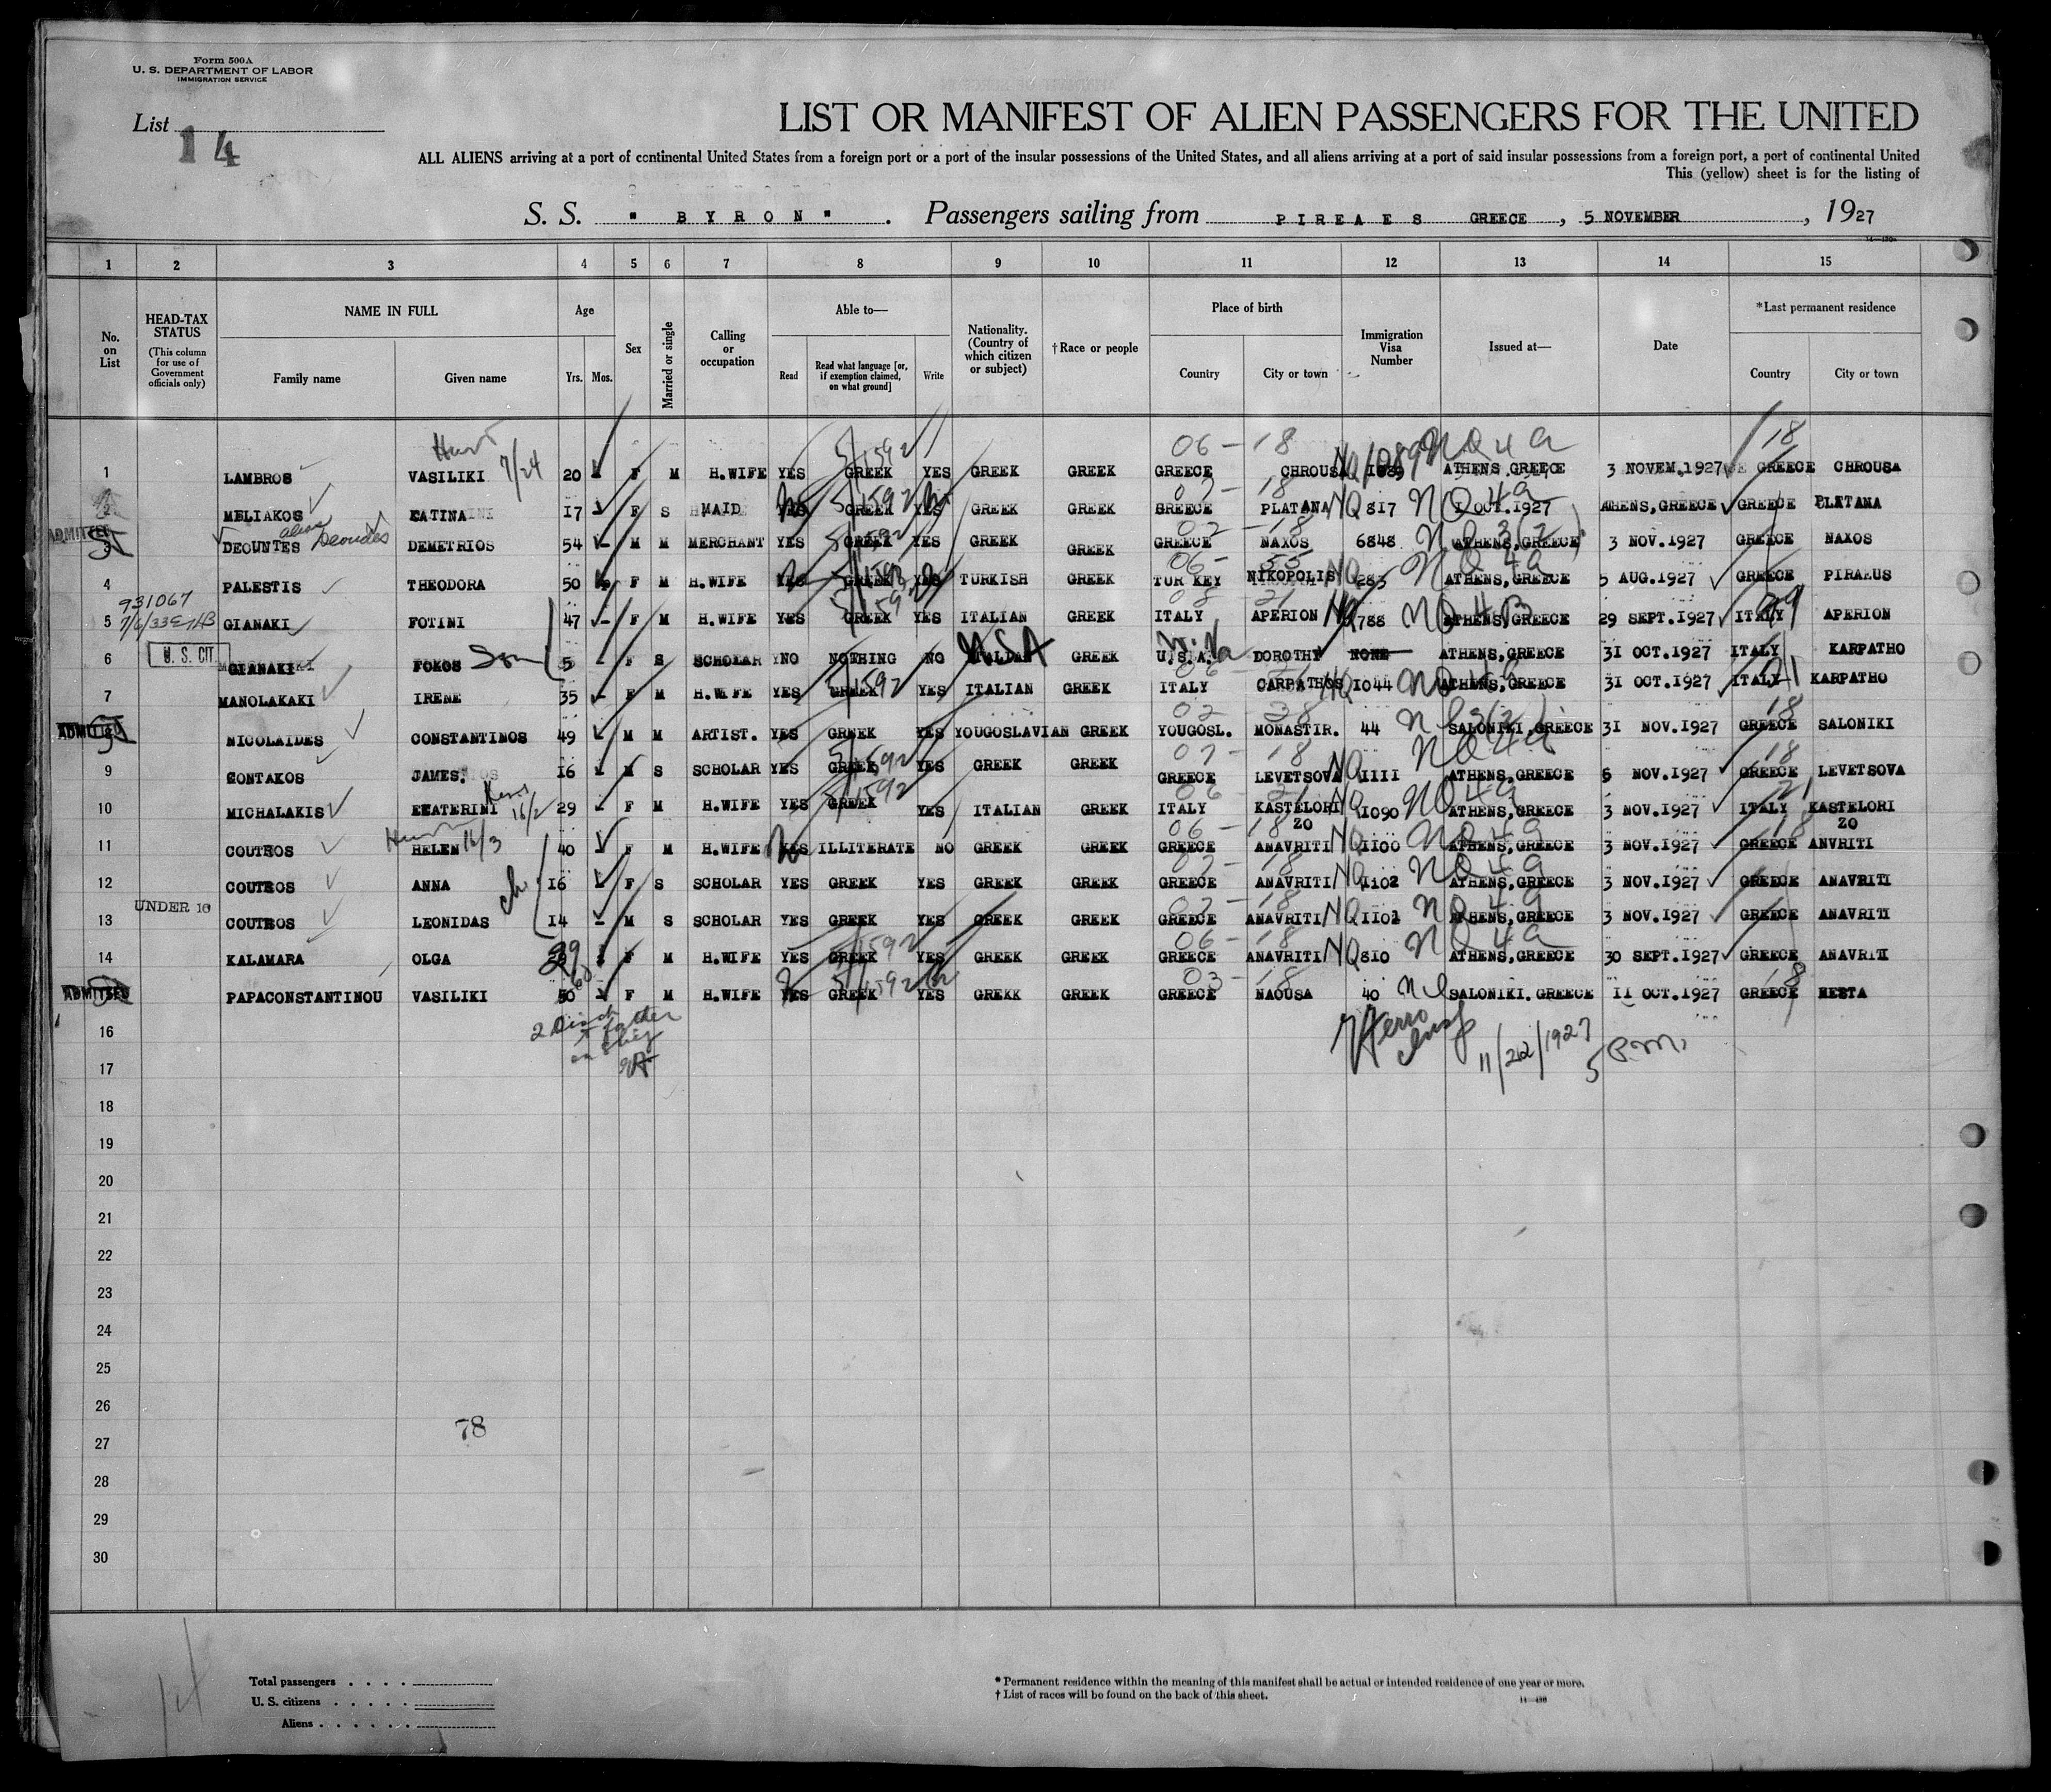 Form 500A
U. S. DEPARTMENT OF LABOR
IMMIGRATION SERVICE
List 14
LIST OR MANIFEST OF ALIEN PASSENGERS FOR THE UNITED
ALL ALIENS arriving at a port of continental United States from a foreign port or a port of the insular possessions of the United States, and all aliens arriving at a port of said insular possessions from a foreign port, a port of continental United
This (yellow) sheet is for the listing of
S. S. " BYRON " . Passengers sailing from PIREAES GREECE , 5 NOVEMBER , 1927
1 2 3 4 5 6 7 8 9 10 11 12 13 14 15
No. on List
HEAD-TAX STATUS (This column for use of Government officials only)
NAME IN FULL
Family name Given name
Age
Yrs. Mos.
Sex
Married or single
Calling or occupation
Able to—
Read Read what language [or, if exemption claimed, on what ground] Write
Nationality. (Country of which citizen or subject)
†Race or people
Place of birth
Country City or town
Immigration Visa Number
Issued at—
Date
*Last permanent residence
Country City or town
06 - 18 NQ 4a 18
1 LAMBROS VASILIKI 7/24 20 F M H.WIFE YES GREEK YES GREEK GREEK GREECE CHROUSA NQ 1089 ATHENS GREECE 3 NOVEM.1927 GREECE CHROUSA
2 MELIAKOS CATINA 17 F S MAID YES GREEK YES GREEK GREEK GREECE PLATANA NQ 817 1 OCT.1927 ATHENS,GREECE GREECE PLATANA
ADMITTED 3 DEOUNTES alias Deoudes DEMETRIOS 54 M M MERCHANT YES GREEK YES GREEK GREEK GREECE NAXOS 6848 ATHENS,GREECE 3 NOV.1927 GREECE NAXOS
4 PALESTIS THEODORA 50 F M H.WIFE YES GREEK YES TURKISH GREEK TURKEY NIKOPOLIS NQ 283 ATHENS,GREECE 5 AUG.1927 GREECE PIRAEUS
931067
5 GIANAKI FOTINI 47 F M H.WIFE YES GREEK YES ITALIAN GREEK ITALY APERION NQ 788 ATHENS,GREECE 29 SEPT.1927 ITALY APERION
6 U. S. CIT. GIANAKI FOKOS Son 5 F S SCHOLAR NO NOTHING NO USA GREEK U.S.A. DOROTHY NONE ATHENS,GREECE 31 OCT.1927 ITALY KARPATHO
7 MANOLAKAKI IRENE 35 F M H.WIFE YES GREEK YES ITALIAN GREEK ITALY CARPATHOS NQ 1044 ATHENS,GREECE 31 OCT.1927 ITALY KARPATHO
ADMITTED NICOLAIDES CONSTANTINOS 49 M M ARTIST. YES GREEK YES YOUGOSLAVIAN GREEK YOUGOSL. MONASTIR. 44 SALONIKI,GREECE 31 NOV.1927 GREECE SALONIKI
9 CONTAKOS JAMES. 16 M S SCHOLAR YES GREEK YES GREEK GREEK GREECE LEVETSOVA NQ 1111 ATHENS,GREECE 5 NOV.1927 GREECE LEVETSOVA
10 MICHALAKIS EKATERINI 16/2 29 F M H.WIFE YES GREEK YES ITALIAN GREEK ITALY KASTELORIZO NQ 1090 ATHENS,GREECE 3 NOV.1927 ITALY KASTELORIZO
11 COUTROS HELEN 16/3 40 F M H.WIFE YES ILLITERATE NO GREEK GREEK GREECE ANAVRITI NQ 1100 ATHENS,GREECE 3 NOV.1927 GREECE ANVRITI
12 COUTROS ANNA ch 16 F S SCHOLAR YES GREEK YES GREEK GREEK GREECE ANAVRITI NQ 1102 ATHENS,GREECE 3 NOV.1927 GREECE ANAVRITI
UNDER 16
13 COUTROS LEONIDAS 14 - M S SCHOLAR YES GREEK YES GREEK GREEK GREECE ANAVRITI NQ 1101 ATHENS,GREECE 3 NOV.1927 GREECE ANAVRITI
14 KALAMARA OLGA 29 F M H.WIFE YES GREEK YES GREEK GREEK GREECE ANAVRITI NQ 810 ATHENS,GREECE 30 SEPT.1927 GREECE ANAVRITI
ADMITTED PAPACONSTANTINOU VASILIKI 50 F M H.WIFE YES GREEK YES GREKK GREEK GREECE NAOUSA 40 SALONIKI.GREECE 11 OCT.1927 GREECE NESTA
16
11/22/1927 5 P.M.
17
18
19
20
21
22
23
24
25
26
78
27
28
29
30
14
Total passengers . . . .
U. S. citizens . . . . .
Aliens . . . . . .
* Permanent residence within the meaning of this manifest shall be actual or intended residence of one year or more.
† List of races will be found on the back of this sheet.